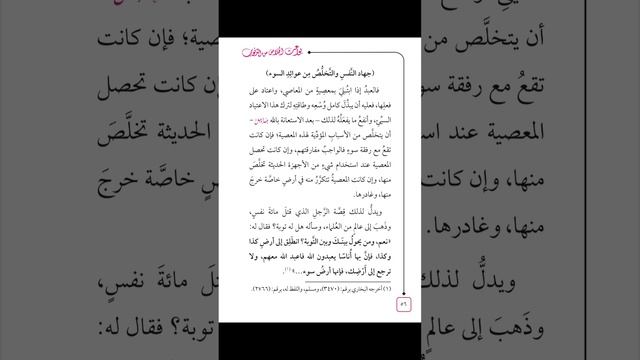 (جهاد النَّفسِ والتَّخلُّصُ مِن عوائدِ السوء)
فالعبدُ إذا ابتُلِيَ بمعصيةٍ من المعاصي، واعتاد على
فعلِها، فعليه أن يبذُلَ كامل وُسْعِه وطاقتِه لتركِ هذا الاعتيادِ
السيِّئ، وأنفعُ ما يفعَلُه لذلك – بعد الاستعانة بالله –
أن يتخلَّص من الأسبابِ المؤدِّيةِ لهذه المعصية؛ فإن كانت
تقعُ مع رفقة سوءٍ فالواجبُ مفارقتُهم، وإن كانت تحصل
المعصية عند استخدامِ شيءٍ من الأجهزة الحديثة تخلَّصَ
منها، وإن كانت المعصيةُ تتكرَّرُ منه في أرضٍ خاصَّة خرجَ
منها، وغادرها.
ويدلُّ لذلك قِصَّة الرَّجلِ الذي قتلَ مائةَ نفسٍ،
وذَهبَ إلى عالمٍ من العُلماء، وسأله هل له توبة؟ فقال له:
«نعم، ومن يحولُ بينَك وبين التَّوبة؟ انطلِقْ إلى أرضِ كذا
وكذا، فإنَّ بها أُناسًا يعبدون الله فاعبد الله معهم، ولا
ترجع إلى أَرْضِك، فإنها أرضُ سوء...»(١).
(١) أخرجه البخاري برقم: (٣٤٧٠)، ومسلم، واللفظ له، برقم: (٢٧٦٦).
٥٦